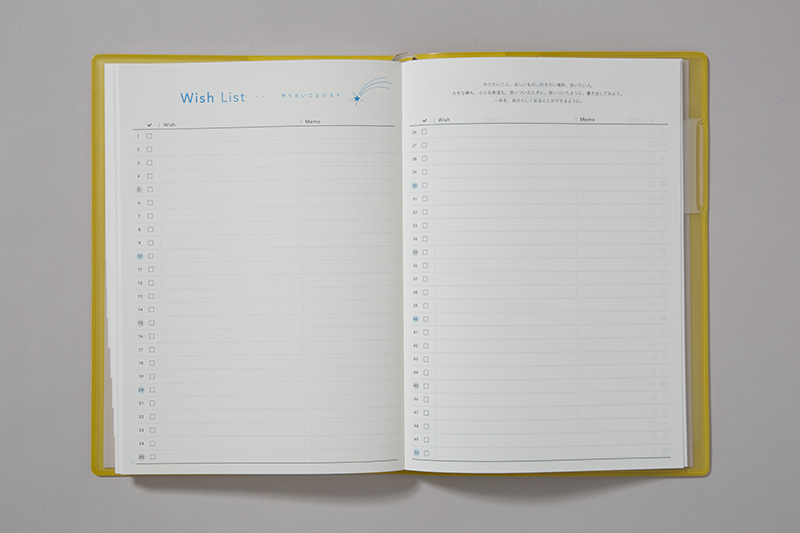 Wish List ・・・ やりたいことリスト
✓ Wish Memo
1
2
3
4
5
6
7
8
9
10
11
12
13
14
15
16
17
18
19
20
21
22
23
24
25
やりたいこと、ほしいもの、行きたい場所、会いたい人。
大きな夢も、小さな希望も。思いついたときに、思いついたように、書き出してみよう。
一年を、自分らしく彩ることができるように。
✓ Wish Memo
26
27
28
29
30
31
32
33
34
35
36
37
38
39
40
41
42
43
44
45
46
47
48
49
50